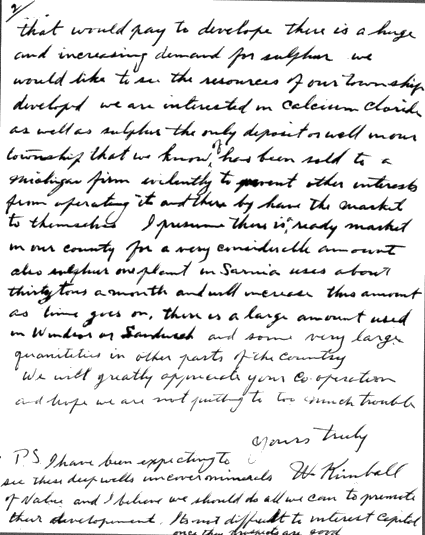 2/
that would pay to develope there is a huge
and increasing demand for sulphur we
would like to see the resources of our township
developd we are interested in Calcium Cloride
as well as sulphur the only deposit or well in our
township that we know of has been sold to a
michigan firm evidently to prevent other interests
from operating it and there by have the market
to themselves I presume there is ready market
in our county for a very considerable amount
also sulphur one plant in Sarnia uses about
thirty tons a month and will increase this amount
as time goes on, there is a large amount used
in Windsor or Sandwich and some very large
quanitities in other parts of the country
We will greatly appreciate your Co operation
and hope we are not putting to too much trouble
Yours truly
W Kimball
P.S. I have been expecting to
see these deep wells uncover minerals
of Value and I believe we should do all we can to promote
their developement. Its not difficult to interest Capital
once they are good